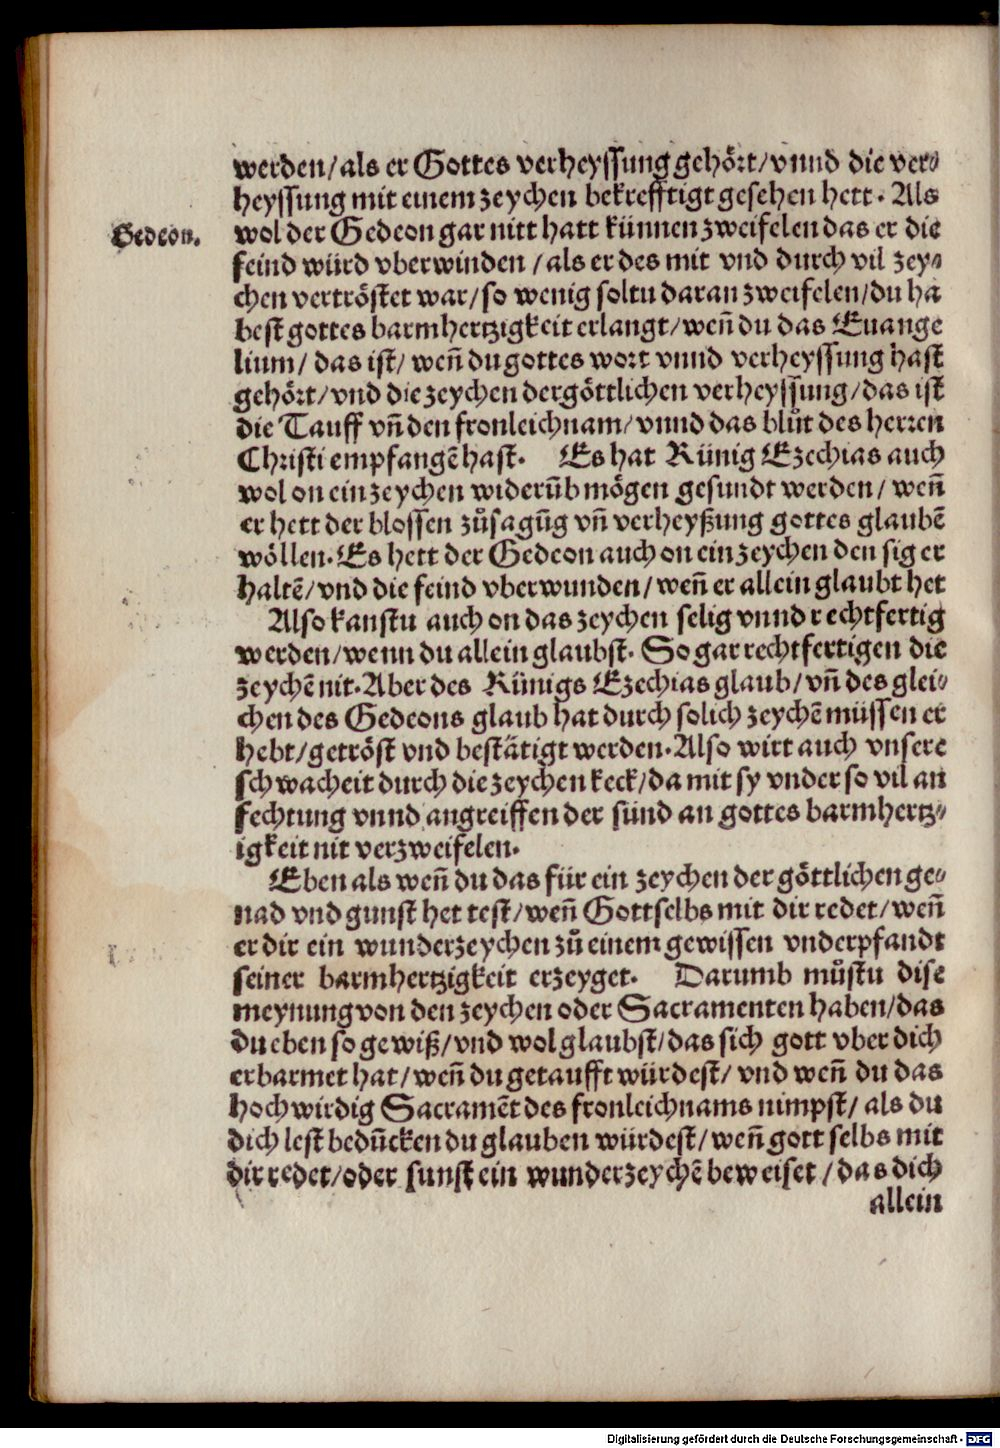 werden/als er Gottes verheyssung gehört/vnnd die ver⸗
heyssung mit einem zeychen bekrefftigt gesehen hett. Als
Gedeon.
wol der Gedeon gar nitt hatt künnen zweifelen das er die
feind würd vberwinden/als er des mit vnd durch vil zey⸗
chen vertröstet war/so wenig soltu daran zweifelen/du ha
best gottes barmhertzigkeit erlangt/weñ du das Euange
lium/das ist/weñ du gottes wort vnnd verheyssung hast
gehört/vnd die zeychen der göttlichen verheyssung/das ist
die Tauff vñ den fronleichnam/vnnd das blůt des herren
Christi empfangẽ hast. Es hat Künig Ezechias auch
wol on ein zeychen widerũb mögen gesundt werden/weñ
er hett der blossen zůsagũg vñ verheyßung gottes glaubẽ
wöllen. Es hett der Gedeon auch on ein zeychen den sig er
haltẽ/vnd die feind vberwunden/weñ er allein glaubt het
Also kanstu auch on das zeychen selig vnnd rechtfertig
werden/wenn du allein glaubst. So gar rechtfertigen die
zeychẽ nit. Aber des Künigs Ezechias glaub/vñ des glei⸗
chen des Gedeons glaub hat durch solich zeychẽ müssen er
hebt/getröst vnd bestätigt werden. Also wirt auch vnsere
schwacheit durch die zeychen keck/da mit sy vnder so vil an
fechtung vnnd angreiffen der sünd an gottes barmhertz⸗
igkeit nit verzweifelen.
Eben als weñ du das für ein zeychen der göttlichen ge⸗
nad vnd gunst het test/weñ Gott selbs mit dir redet/weñ
er dir ein wunderzeychen zů einem gewissen vnderpfandt
seiner barmhertzigkeit erzeyget. Darumb můstu dise
meynung von den zeychen oder Sacramenten haben/das
du eben so gewiß/vnd wol glaubst/das sich gott vber dich
erbarmet hat/weñ du getaufft würdest/vnd weñ du das
hochwirdig Sacramẽt des fronleichnams nimpst/als du
dich lest bedũcken du glauben würdest/weñ gott selbs mit
dir redet/oder sunst ein wunderzeychẽ beweiset/das dich
allein
Digitalisierung gefördert durch die Deutsche Forschungsgemeinschaft - DFG